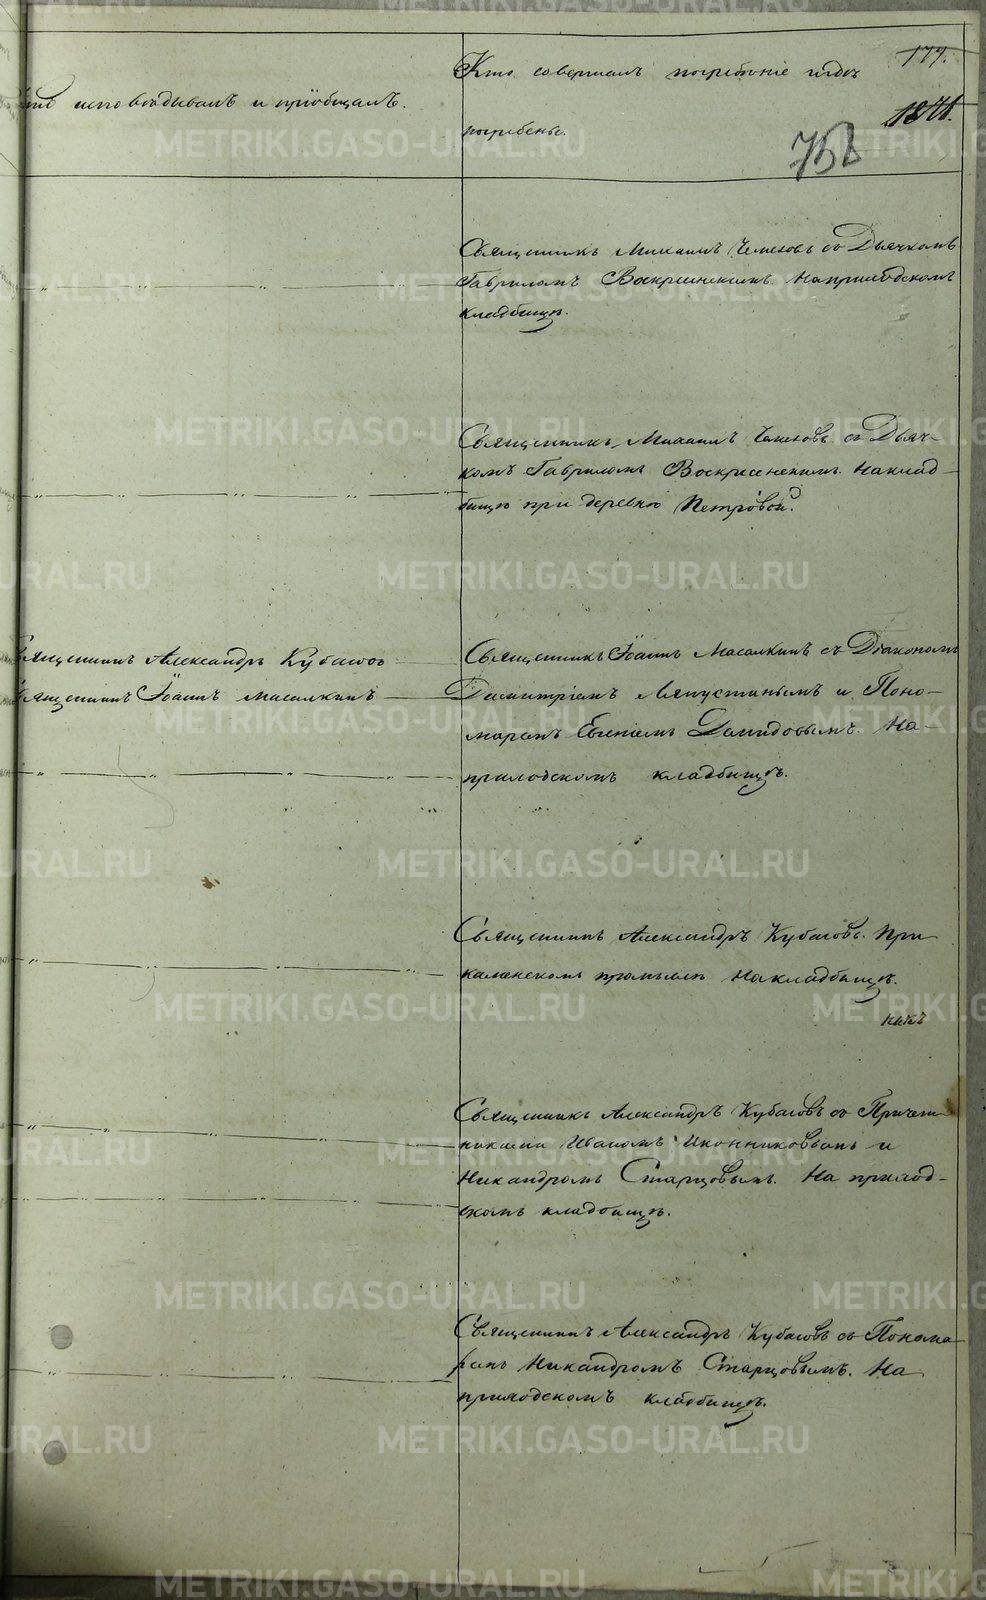 Кто совершалъ погребеніе и гдѣ
177.
Кто исповѣдывалъ и пріобщалъ.
погребены.
1871.
758
Священникъ Михаилъ Чемезовъ съ Дьячкомъ
Гавриломъ Воскресенскимъ. На приходскомъ
кладбищѣ.
Священникъ Михаилъ Чемезовъ съ Дьяч-
комъ Гавриломъ Воскресенскимъ. На клад-
бищѣ при деревнѣ Петровой.
Священникъ Александръ Кубасовъ
Священникъ Іоаннъ Масалкинъ
Священникъ Іоаннъ Масалкинъ съ Діакономъ
Димитріемъ Ляпустинымъ и Поно-
маремъ Евгеніемъ Демидовымъ. На
приходскомъ кладбищѣ.
Священникъ Александръ Кубасовъ. При
каменскомъ промыслѣ на кладбищѣ.
Священникъ Александръ Кубасовъ съ Причетн
никами Иваномъ Иконниковымъ и
Никандромъ Старцовымъ. На приход-
скомъ кладбищѣ.
Священникъ Александръ Кубасовъ съ Понома
ремъ Никандромъ Старцовымъ. На
приходскомъ кладбищѣ.
METRIKI.GASO-URAL.RU